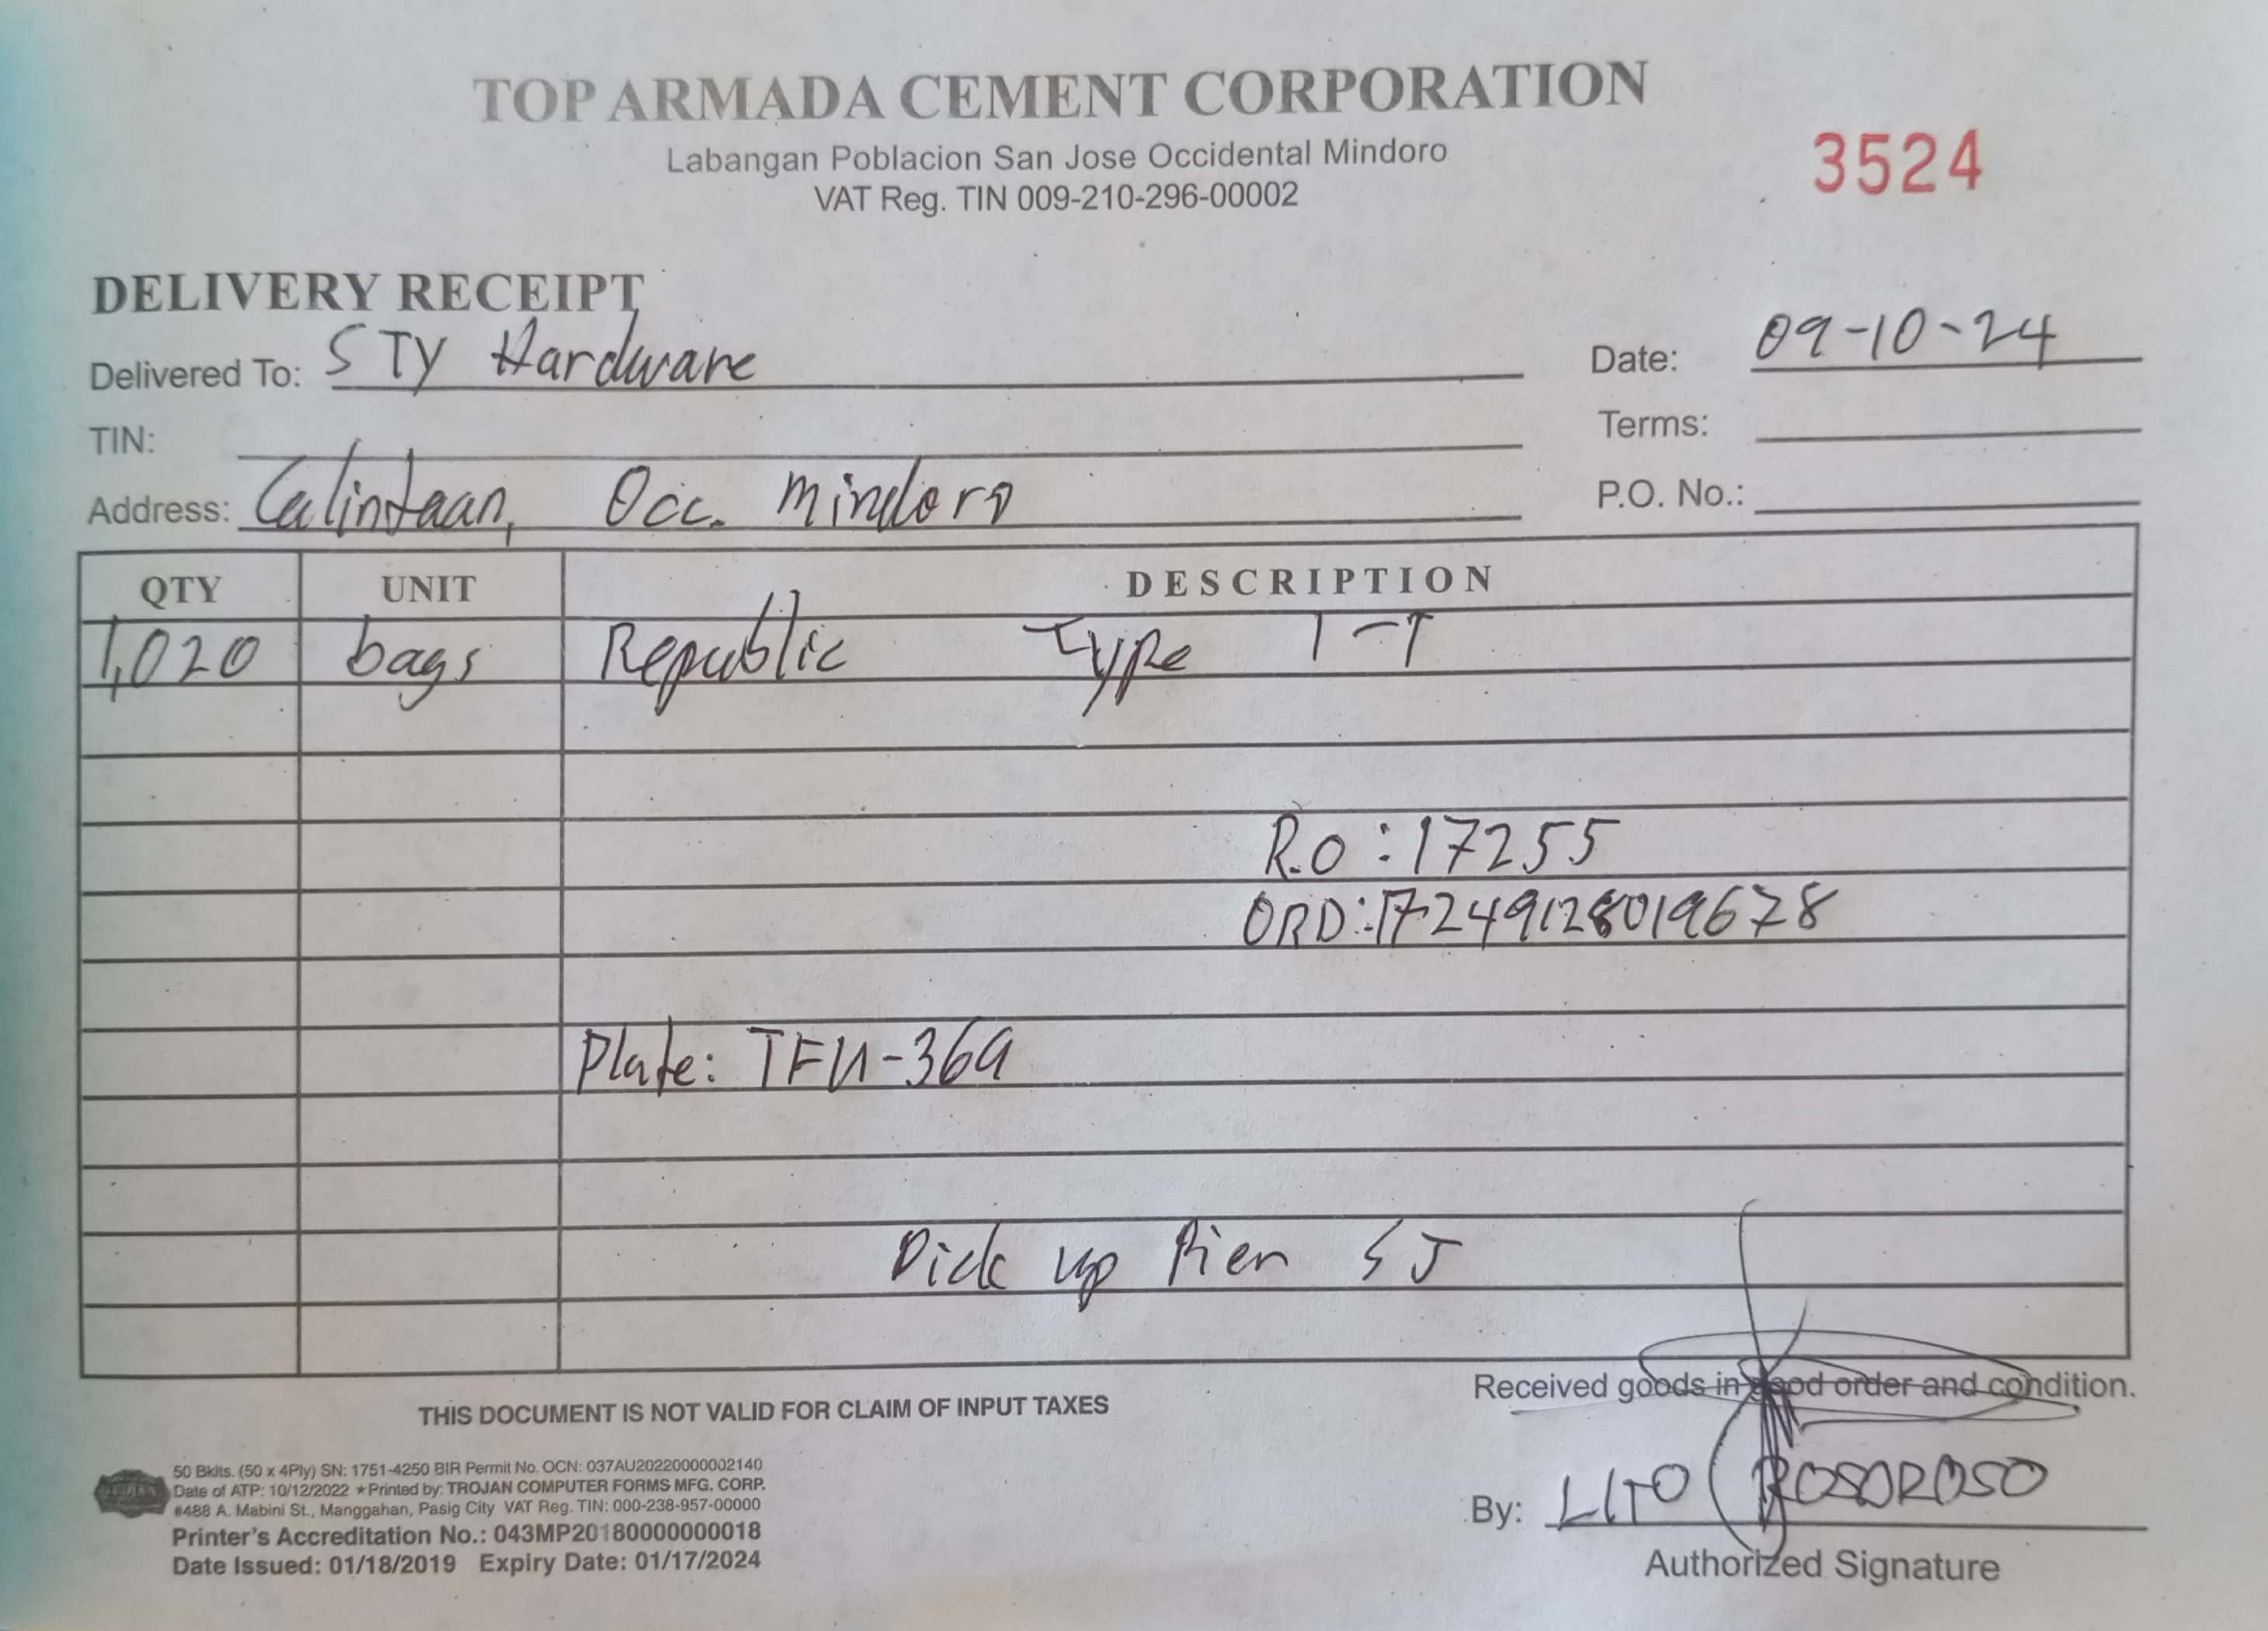 TOP ARMADA CEMENT CORPORATION
Labangan Poblacion San Jose Occidental Mindoro
VAT Reg. TIN 009-210-296-00002
3524
DELIVERY RECEIPT
Delivered To: STY Hardware
Date: 09-10-24
TIN:
Terms:
Address: Calintaan, Occ. Mindoro
P.O. No.:
QTY UNIT DESCRIPTION
1,020 bags Republic Type 1-T
R.O : 17255
ORD: 17249128019678
Plate: TFU-369
Pick up Pier SJ
Received goods in good order and condition.
THIS DOCUMENT IS NOT VALID FOR CLAIM OF INPUT TAXES
50 Bklts. (50 x 4Ply) SN: 1751-4250 BIR Permit No. OCN: 037AU20220000002140
Date of ATP: 10/12/2022 ★Printed by: TROJAN COMPUTER FORMS MFG. CORP.
#488 A. Mabini St., Manggahan, Pasig City VAT Reg. TIN: 000-238-957-00000
Printer's Accreditation No.: 043MP20180000000018
Date Issued: 01/18/2019 Expiry Date: 01/17/2024
By: LITO ROSOROSO
Authorized Signature